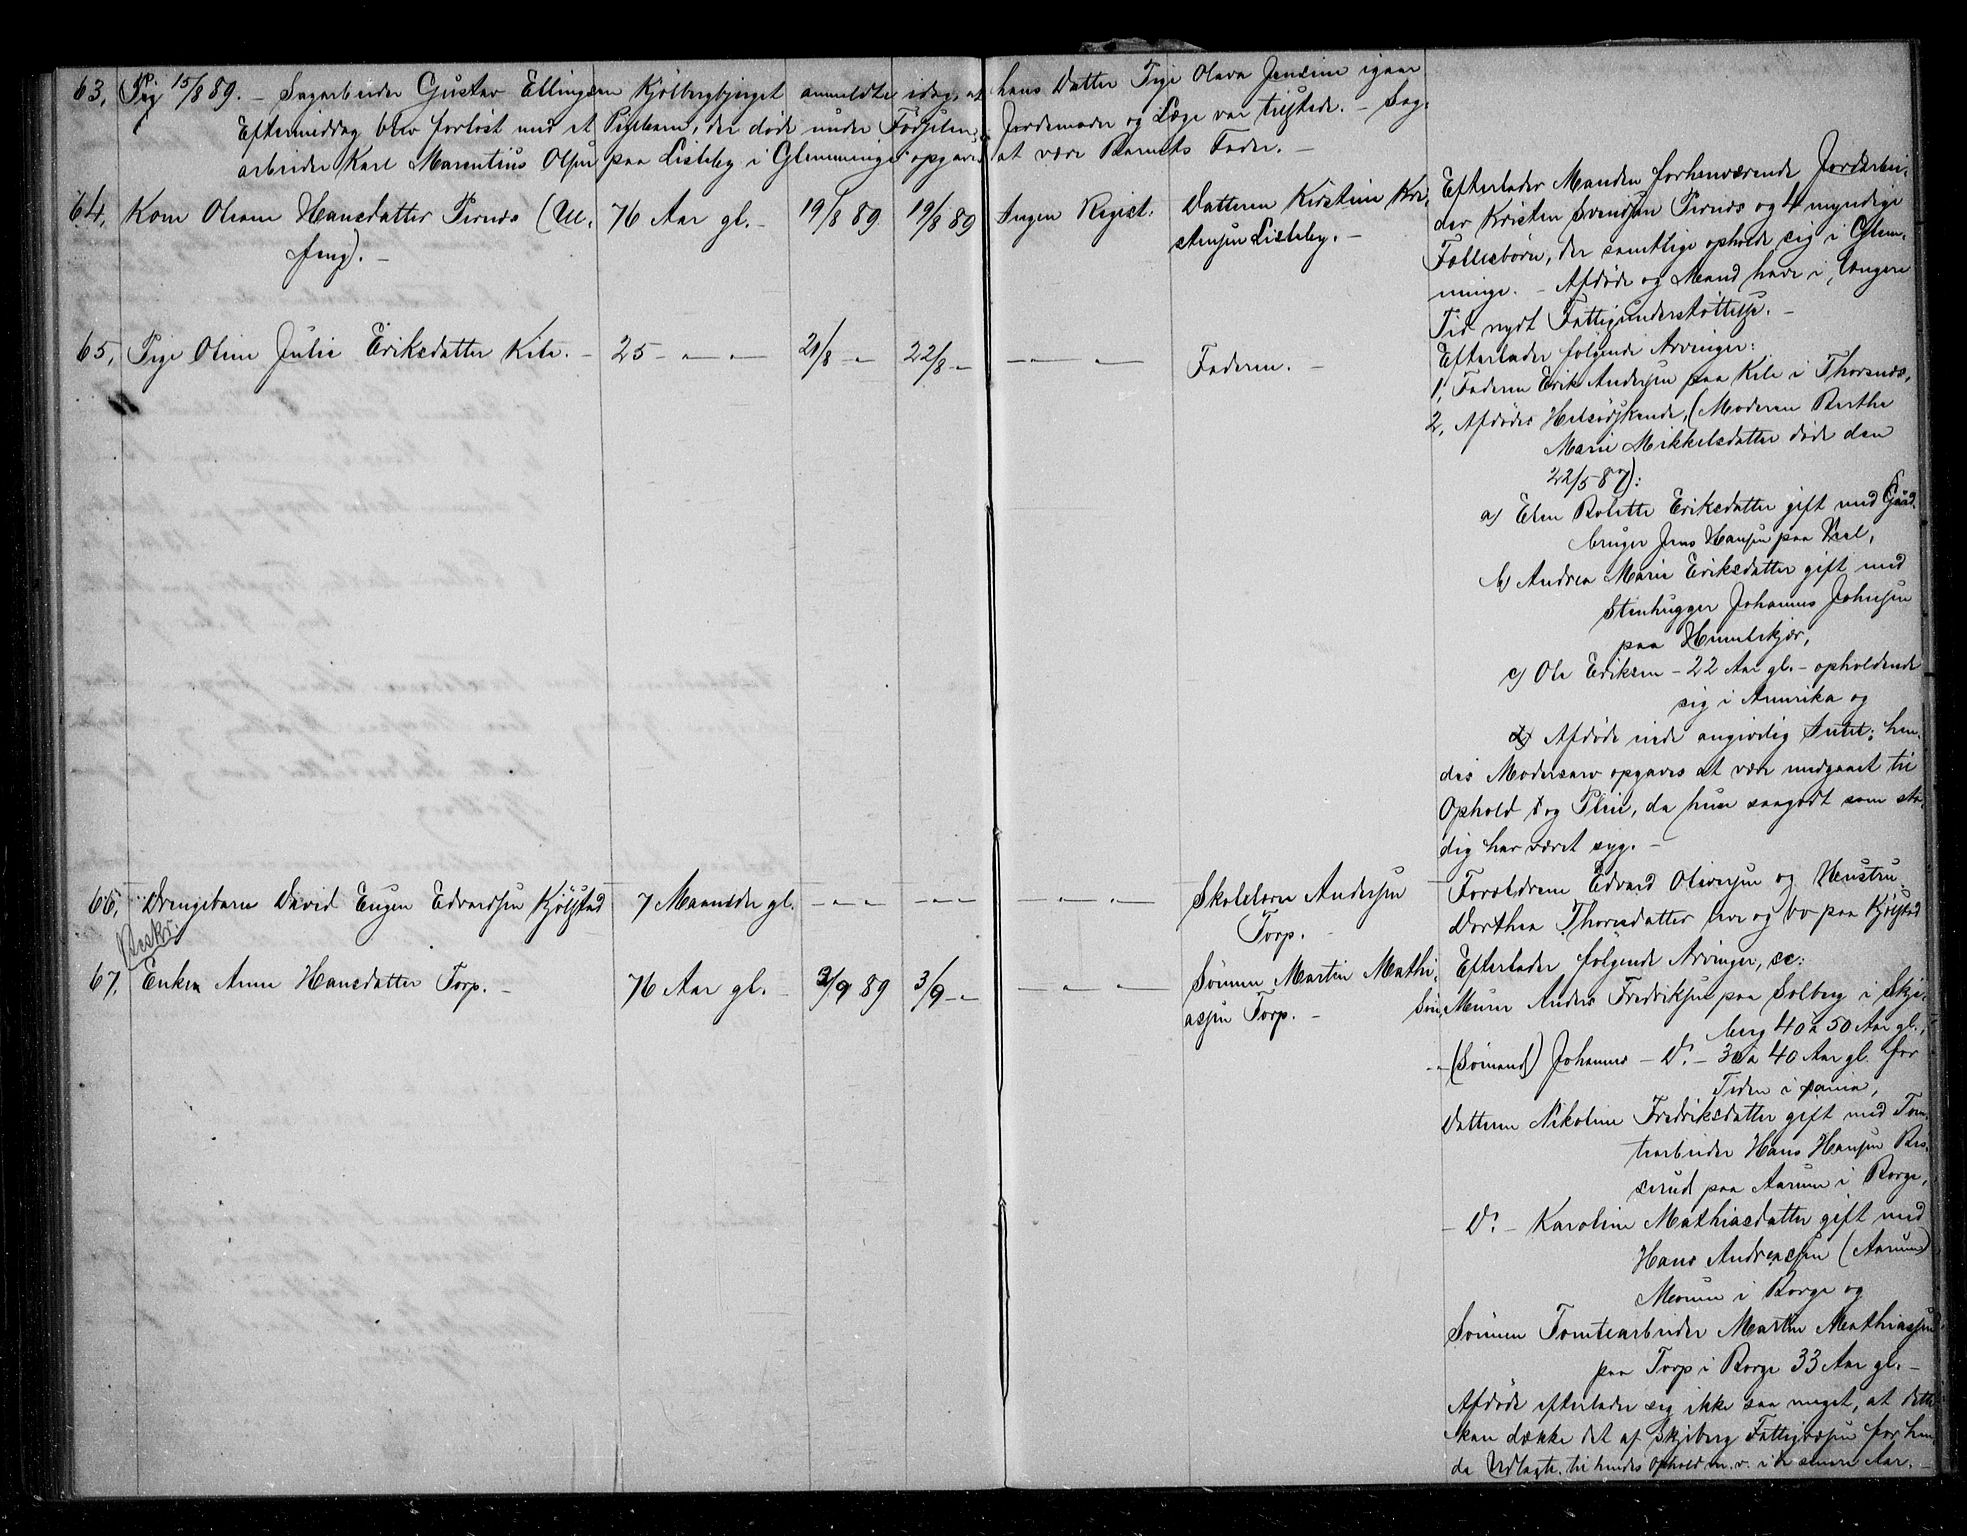 63, Pig 15/8 89. – Sagarbeider Gustav Ellingsen Kjölbergbjerget anmeldte idag, at hans Datter Pige Olava Jensine igaar
Eftermiddag blev forlöst med et Pigebarn, der döde under Födselen. Jordemoder og Læge var tilstede. – Sag-
arbeider Karl Marentius Olsen paa Lisleby i Glemminge opgaves at være Barnets Fader. –
64, Kone Oleane Hansdatter Pernes (Ul. feng). – 76 Aar gl. – 19/8 89 19/8 89 Ingen Regist. Datteren Kirstine Kri-
stensen Lisleby. –
Efterlader Manden forhenværende Jordarbei-
der Kristen Svendsen Pernes og 4 myndige
Fællesbörn, der samtlige opholde sig i Glem-
minge. – Afdöde og Mand have i længere
Tid nydt Fattigunderstöttelse. –
65, Pige Oline Julie Eriksdatter Kile. – 25 – " – " – 21/8 – " 22/8 – " – " – " – Faderen. –
Efterlader fölgende Arvinger:
1, Faderen Erik Andersen paa Kile i Thorsnes,
2, Afdödes Helsödskende, (Moderen Berthe
Marie Mikkelsdatter döde den
22/5 87):
a) Elen Bolette Eriksdatter gift med Gaard-
bruger Jens Hansen paa Ual,
b) Andrea Marie Eriksdatter gift med
Stenhugger Johannes Johnsen
paa Hunnlskjær,
c) Ole Eriksen – 22 Aar gl. – opholdende
sig i Amerika og
d) Afdöde eiede angivelig Intet; hen-
des Modersarv opgaves at være medgaaet til
Ophold og Pleie, da hun saagodt som sta-
dig har været syg. –
66, Drengebarn David Eugen Edvardsen Kjölstad 7 Maaneder gl. – " – " – " – " – " – " – Skolelærer Andersen
Torp. –
Forældrene Edvard Oliversen og Hustru
Dorthea Thorsdatter leve og bo paa Kjölstad
Beskr.
67, Enke Anne Hansdatter Torp. – 76 Aar gl. – 2/9 89 3/9 – " – " – " – Sönnen Martin Mathi-
asen Torp. –
Efterlader fölgende Arvinger, sc:
Sön, Murer Anders Fredriksen paa Solberg i Skje-
berg 40 a 50 Aar gl.,
– " – (Sömand) Johannes – Do – 30 a 40 Aar gl. for
Tiden i
Datteren Nikoline Fredriksdatter gift med Tom-
tearbeider Hans Hansen Bes-
serud paa Aarum i Borge,
– Do – Karoline Mathiasdatter gift med
Hans Andreassen (Aarum)
Moum i Borge og
Sönnen Tomtearbeider Martin Mathiassen
paa Torp i Borge 33 Aar gl. –
Afdöde efterlader sig ikke saa meget, at dette
kan dække det af Skjeberg Fattigvæsen for hen-
de Udlagte til hendes Ophold m. v. i de senere Aar. –